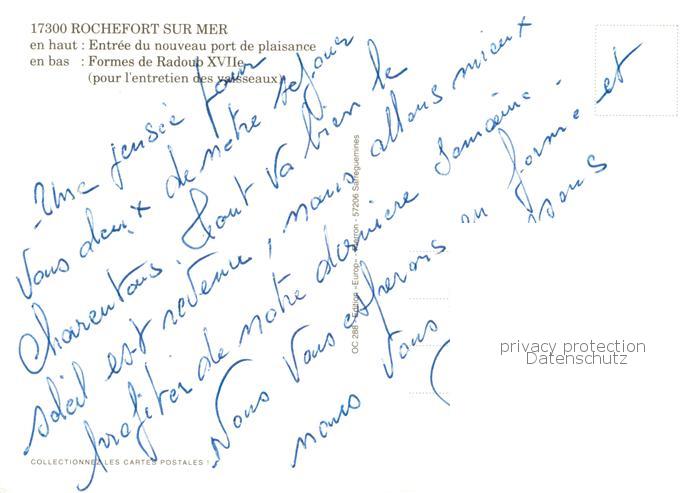 17300 ROCHEFORT SUR MER
en haut : Entrée du nouveau port de plaisance
en bas : Formes de Radoub XVIIe
(pour l'entretien des vaisseaux)
Une pensée pour
vous deux de notre séjour
Charentais. Tout va bien le
soleil est revenu, nous allons mieux
profiter de notre dernière semaine.
Nous vous espérons en forme et
nous vous
OC 288 - Edition «Europ» - Pierron - 57206 Sarreguemines
privacy protection
Datenschutz
COLLECTIONNEZ LES CARTES POSTALES !